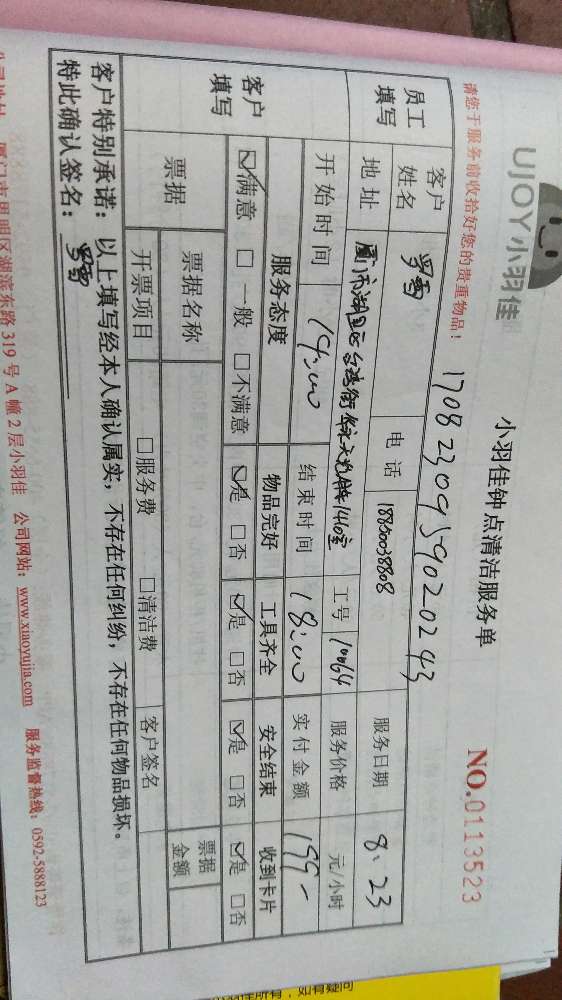 UJOY小羽佳
小羽佳钟点清洁服务单
请您于服务前收拾好您的贵重物品！
NO.0113523
1708230959020243
员工填写
客户姓名
电话
18850038808
服务日期
8.23
地址
工号
10064
服务价格
元/小时
客户填写
开始时间
14:00
结束时间
18:00
实付金额
199-
服务态度
物品完好
工具齐全
安全结束
收到卡片
☑满意 □一般 □不满意
☑是 □否
☑是 □否
☑是 □否
☑是 □否
票据
票据名称
票据金额
开票项目
□服务费 □清洁费
客户签名
客户特别承诺：以上填写经本人确认属实，不存在任何纠纷，不存在任何物品损坏。
特此确认签名：
厦门市思明区湖滨东路319号A幢2层小羽佳 公司网站：www.xiaoyujia.com 服务监督热线：0592-5888123
如有疑问